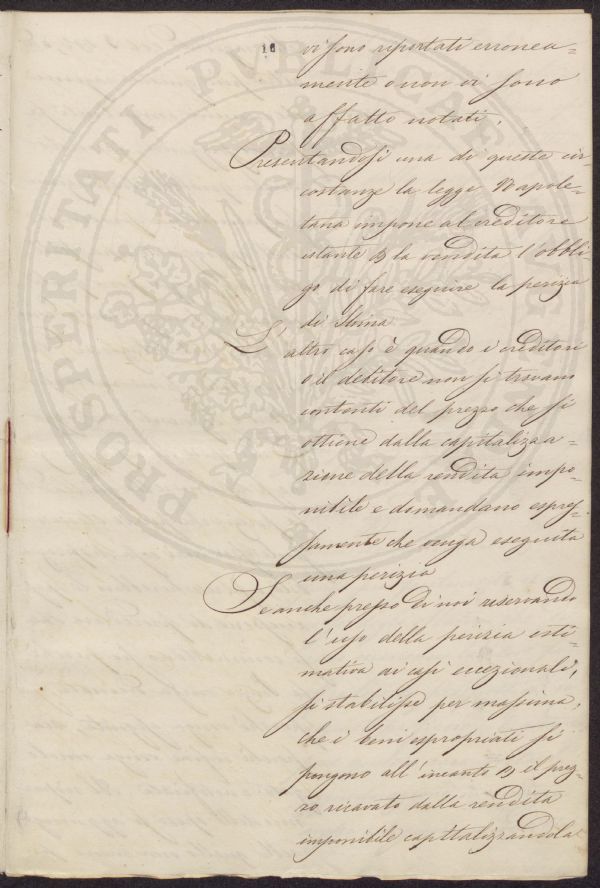 18
vi sono riportati erronea=
mente o non vi sono
affatto notati.
Presentandosi una di queste cir=
costanze la legge Napole=
tana impone al creditore
istante p la vendita l'obbli=
go di fare eseguire la perizia
di Stima
L'altro caso è quando i creditori
o il debitore non si trovano
contenti del prezzo che si
ottiene dalla capitalizza=
zione della rendita impo=
nibile e dimandano espres=
samente che venga eseguita
una perizia
Se anche presso di noi riservando
l'uso della perizia esti=
mativa ai casi eccezionali,
si stabilisse per massima,
che i beni espropriati si
pongono all'incanto p il prez=
zo ricavato dalla rendita
imponibile capitalizzandola
PROSPERITATI PVBLICAE